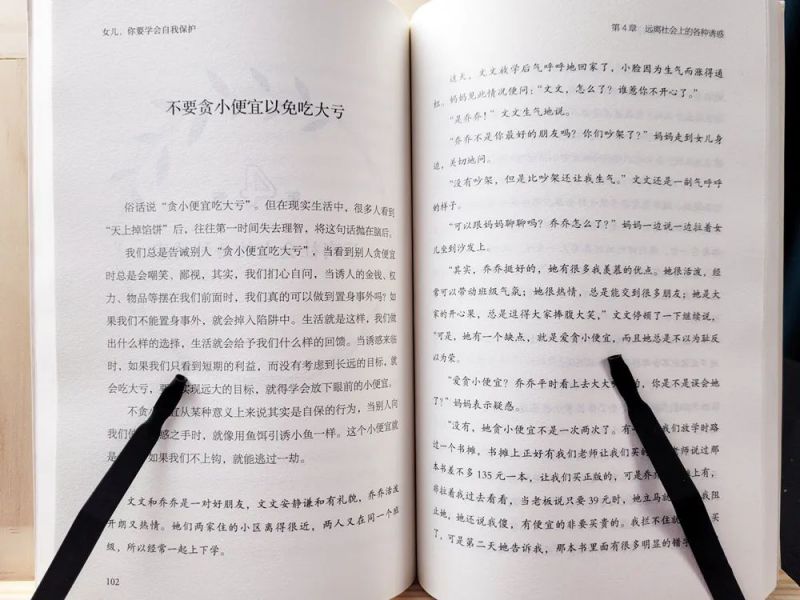 女儿，你要学会自我保护
不要贪小便宜以免吃大亏
俗话说“贪小便宜吃大亏”，但在现实生活中，很多人看到
“天上掉馅饼”后，往往第一时间失去理智，将这句话抛在脑后。
我们总是告诫别人“贪小便宜吃大亏”，当看到别人贪便宜
时总是会嘲笑、鄙视，其实，我们扪心自问，当诱人的金钱、权
力、物品等摆在我们前面时，我们真的可以做到置身事外吗？如
果我们不能置身事外，就会掉入陷阱中。生活就是这样，我们做
出什么样的选择，生活就会给予我们什么样的回馈。当诱惑来临
时，如果我们只看到短期的利益，而没有考虑到长远的目标，就
会吃大亏，要实现远大的目标，就得学会放下眼前的小便宜。
不贪小便宜从某种意义上来说其实是自保的行为，当别人向
我们 惑之手时，就像用鱼饵引诱小鱼一样。这个小便宜就
是 如果我们不上钩，就能逃过一劫。
文文和乔乔是一对好朋友，文文安静谦和有礼貌，乔乔活波
开朗又热情。她们两家住的小区离得很近，两人又在同一个班
级，所以经常一起上下学。
102
第4章 远离社会上的各种诱惑
这天，文文放学后气呼呼地回家了，小脸因为生气而涨得通
红。妈妈见此情况便问：“文文，怎么了？谁惹你不开心了。”
“是乔乔！”文文生气地说。
“乔乔不是你最好的朋友吗？你们吵架了？”妈妈走到女儿身
边，关切地问。
“没有吵架，但是比吵架还让我生气。”文文还是一副气呼呼
的样子。
“可以跟妈妈聊聊吗？乔乔怎么了？”妈妈一边说一边拉着女
儿坐到沙发上。
“其实，乔乔挺好的，她有很多我羡慕的优点。她很活波，经
常可以带动班级气氛；她很热情，总是能交到很多朋友；她是大
家的开心果，总是逗得大家捧腹大笑，”文文停顿了一下继续说，
“可是，她有一个缺点，就是爱贪小便宜，而且她总是不以为耻反
以为荣。
“爱贪小便宜？乔乔平时看上去大大 的，你是不是误会她
了？”妈妈表示疑惑。
“没有，她贪小便宜不是一次两次了。有一 我们放学时路
过一个书摊，书摊上正好有我们老师让我们买的 老师说过那
本书差不多135元一本，让我们买正版的，可是乔 摊上有，
非拉着我过去看看，当老板说只要39元时，她立马就 我阻
止她，她还说我傻，有便宜的非要买贵的。我拦不住就 买
了，可是第二天她告诉我，那本书里面有很多明显的错字